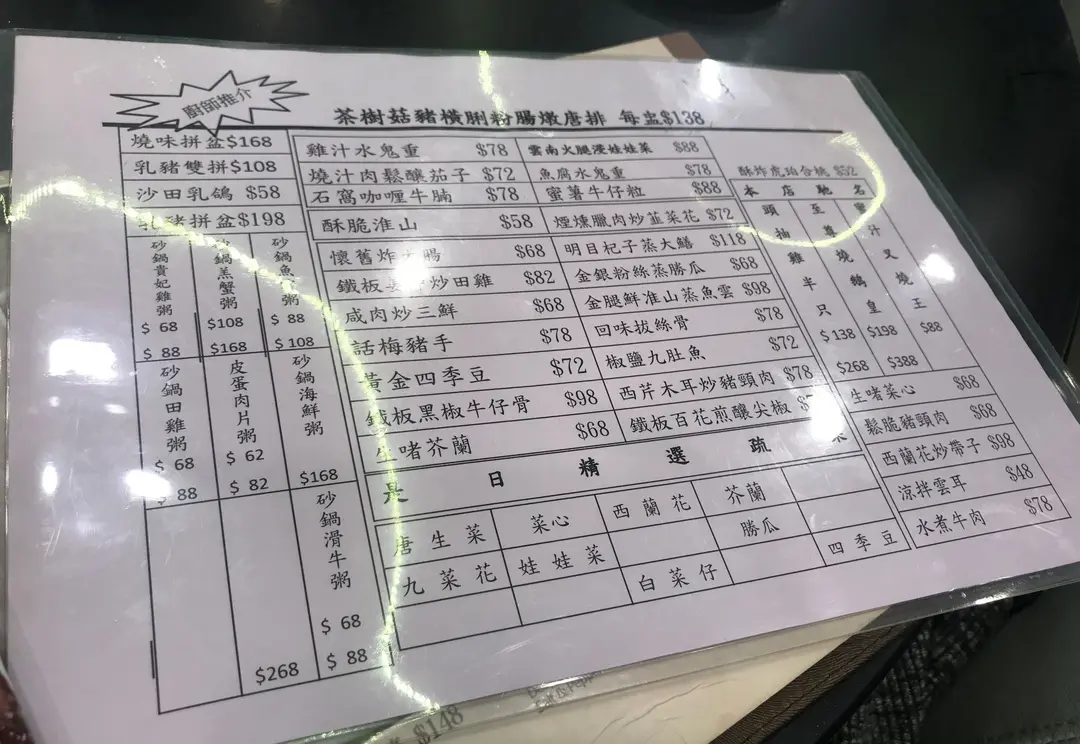 廚師推介
茶樹菇豬橫脷粉腸燉唐排 每盅$138
燒味拼盆$168
乳豬雙拼$108
沙田乳鴿 $58
豬拼盆$198
砂鍋貴妃雞粥
$ 68
$ 88
羔蟹粥
$108
$168
砂鍋魚 粥
$ 88
$ 108
砂鍋田雞粥
$ 68
$ 88
皮蛋肉片粥
$ 62
$ 82
砂鍋海鮮粥
$168
$268
砂鍋滑牛粥
$ 68
$ 88
雞汁水鬼重 $78
雲南火腿浸娃娃菜 $88
燒汁肉鬆釀茄子 $72
魚腐水鬼重 $78
石窩咖喱牛腩 $78
蜜薯牛仔粒 $88
酥脆淮山 $58
煙燻臘肉炒韮菜花 $72
懷舊炸 腸 $68
明目杞子蒸大鱔 $118
鐵板 炒田雞 $82
金銀粉絲蒸勝瓜 $68
咸肉炒三鮮 $68
金腿鮮淮山蒸魚雲 $98
話梅豬手 $78
回味拔絲骨 $78
黃金四季豆 $72
椒鹽九肚魚 $72
鐵板黑椒牛仔骨 $98
西芹木耳炒豬頸肉 $78
生啫芥蘭 $68
鐵板百花煎釀尖椒
酥炸虎珀合桃 $52
本店馳名
頭抽雞半只
$ 138
$268
至尊燒鵝皇
$198
$388
蜜汁叉燒王
$88
生啫菜心 $68
鬆脆豬頸肉 $68
西蘭花炒帶子 $98
涼拌雲耳 $48
水煮牛肉 $78
是日精選疏菜
唐生菜 菜心 西蘭花 芥蘭
九菜花 娃娃菜 勝瓜
白菜仔 四季豆
$148